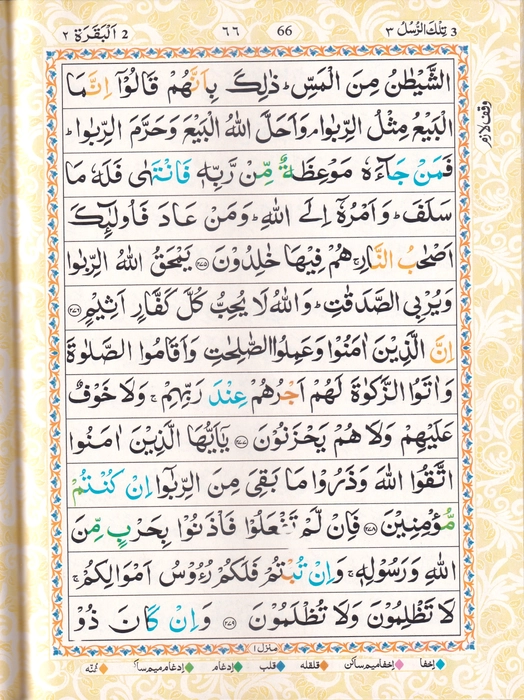 3 تِلْكَ الرُّسُلُ ٣ 66 ٦٦ 2 اَلْبَقَرَة ٢
الشَّيْطٰنُ مِنَ الْمَسِّ ؕ ذٰلِكَ بِاَنَّهُمْ قَالُوْۤا اِنَّمَا
الْبَيْعُ مِثْلُ الرِّبٰوا ۘ وَاَحَلَّ اللّٰهُ الْبَيْعَ وَحَرَّمَ الرِّبٰوا ؕ
وقف لازم
فَمَنْ جَآءَهٗ مَوْعِظَةٌ مِّنْ رَّبِّهٖ فَانْتَهٰى فَلَهٗ مَا
سَلَفَ ؕ وَاَمْرُهٗۤ اِلَى اللّٰهِ ؕ وَمَنْ عَادَ فَاُولٰٓئِكَ
اَصْحٰبُ النَّارِ ۚ هُمْ فِيْهَا خٰلِدُوْنَ ﴿٢٧٥﴾ يَمْحَقُ اللّٰهُ الرِّبٰوا
وَيُرْبِى الصَّدَقٰتِ ؕ وَاللّٰهُ لَا يُحِبُّ كُلَّ كَفَّارٍ اَثِيْمٍ ﴿٢٧٦﴾
اِنَّ الَّذِيْنَ اٰمَنُوْا وَعَمِلُوا الصّٰلِحٰتِ وَاَقَامُوا الصَّلٰوةَ
وَاٰتَوُا الزَّكٰوةَ لَهُمْ اَجْرُهُمْ عِنْدَ رَبِّهِمْ ۚ وَلَا خَوْفٌ
عَلَيْهِمْ وَلَا هُمْ يَحْزَنُوْنَ ﴿٢٧٧﴾ يٰۤاَيُّهَا الَّذِيْنَ اٰمَنُوا
اتَّقُوا اللّٰهَ وَذَرُوْا مَا بَقِىَ مِنَ الرِّبٰۤوا اِنْ كُنْتُمْ
مُّؤْمِنِيْنَ ﴿٢٧٨﴾ فَاِنْ لَّمْ تَفْعَلُوْا فَاْذَنُوْا بِحَرْبٍ مِّنَ
اللّٰهِ وَرَسُوْلِهٖ ۚ وَاِنْ تُبْتُمْ فَلَكُمْ رُءُوْسُ اَمْوَالِكُمْ ۚ
لَا تَظْلِمُوْنَ وَلَا تُظْلَمُوْنَ ﴿٢٧٩﴾ وَاِنْ كَانَ ذُوْ
منزل ١
اخفا اخفا میم ساکن قلقلہ قلب ادغام ادغام میم ساکن غنّہ